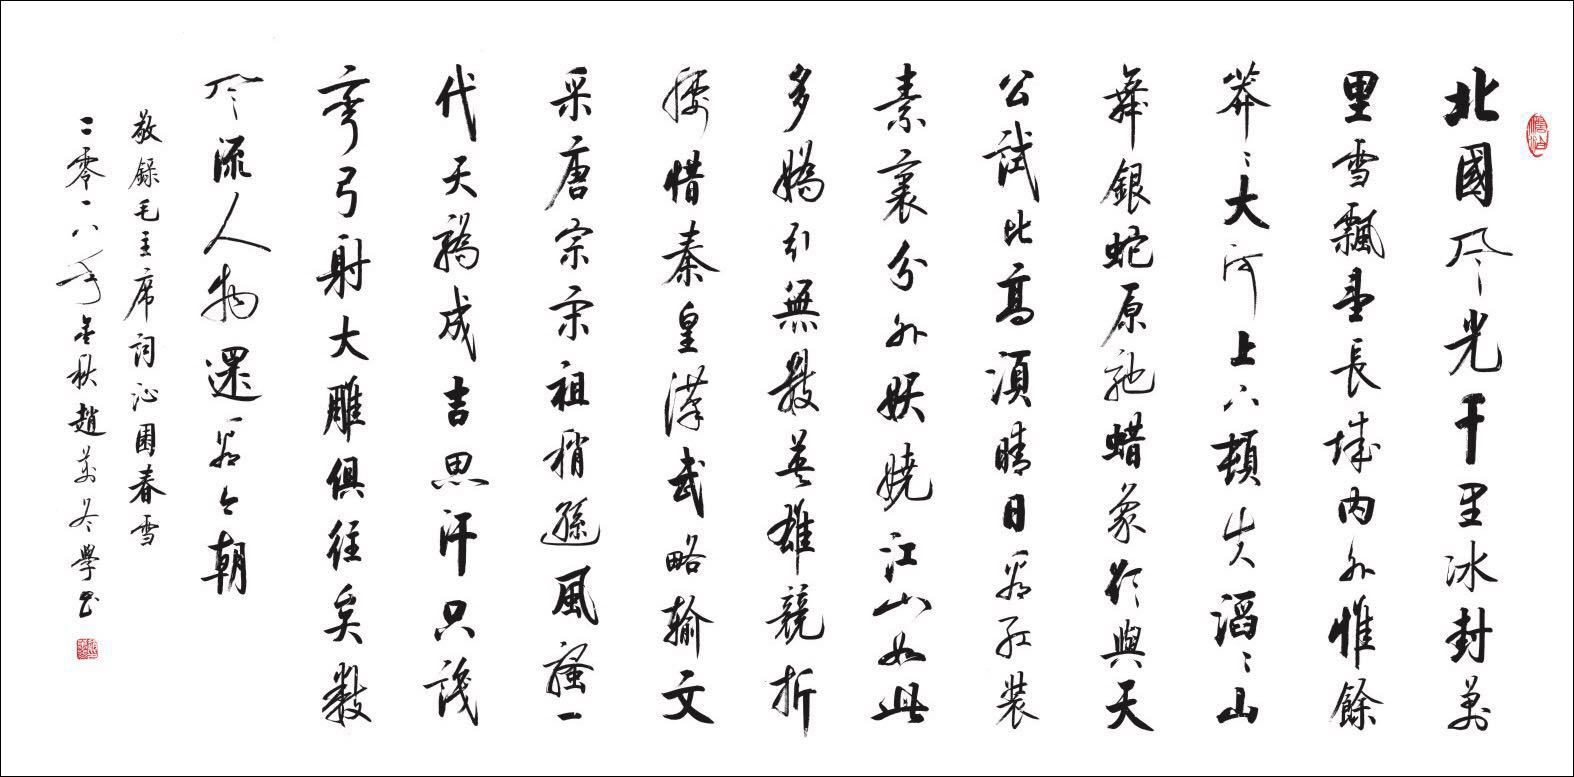 北國风光千里冰封萬
里雪飄望長城内外惟餘
莽〻大河上下頓失滔〻山
舞銀蛇原馳蜡象欲與天
公試比高須晴日看紅裝
素裹分外妖嬈江山如此
多嬌引無數英雄競折
腰惜秦皇漢武略輸文
采唐宗宋祖稍遜風騷一
代天驕成吉思汗只識
彎弓射大雕俱往矣數
风流人物還看今朝
敬録毛主席詞沁園春雪
二零一八年金秋趙萬冬學書